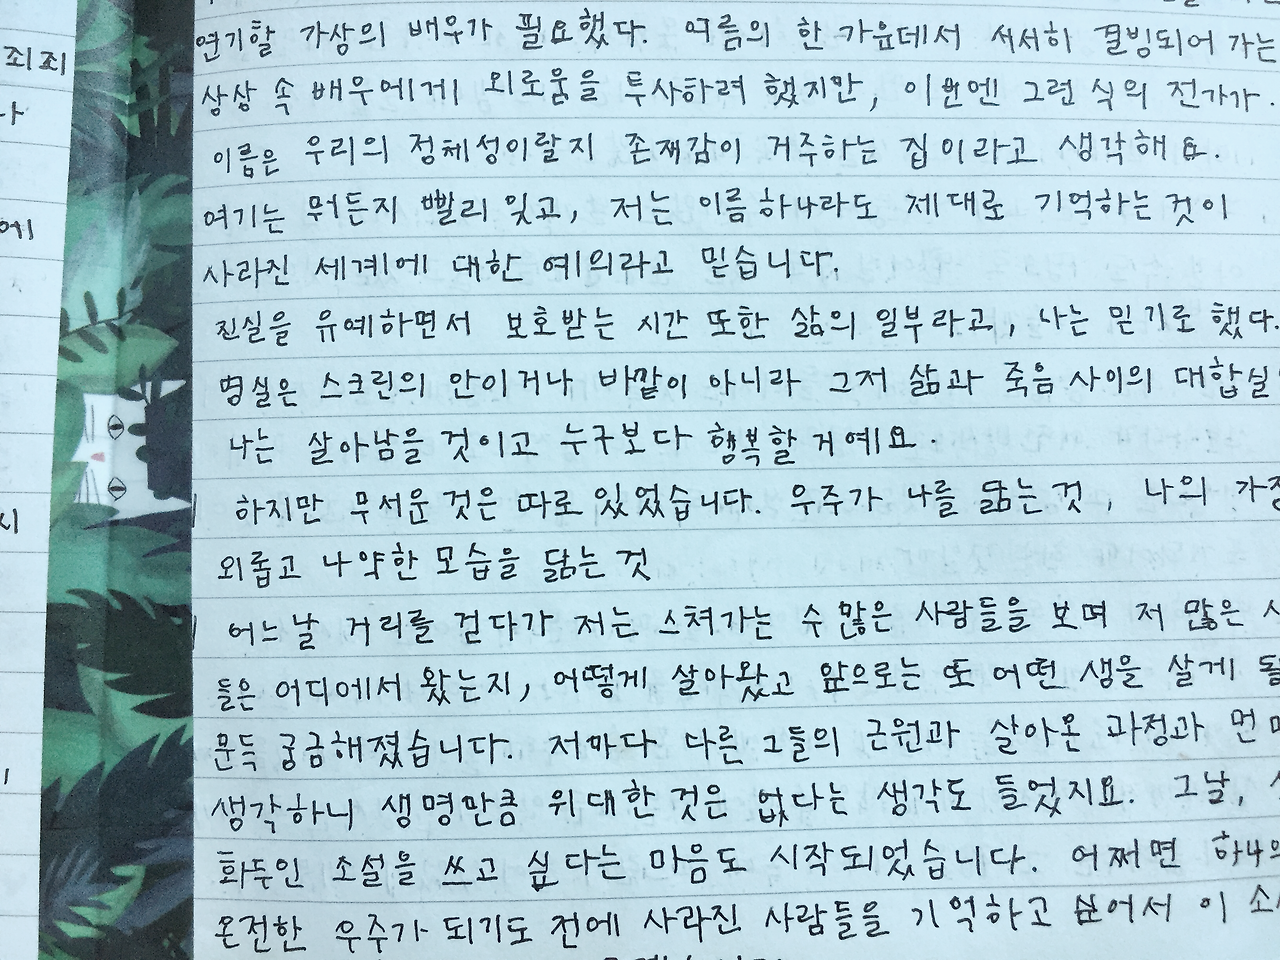 죄죄
연기할 가상의 배우가 필요했다. 여름의 한 가운데서 서서히 결빙되어 가는
상상 속 배우에게 외로움을 투사하려 했지만, 이번엔 그런 식의 전가가.
이름은 우리의 정체성이랄지 존재감이 거주하는 집이라고 생각해요.
여기는 뭐든지 빨리 잊고, 저는 이름 하나라도 제대로 기억하는 것이
사라진 세계에 대한 예의라고 믿습니다.
진실을 유예하면서 보호받는 시간 또한 삶의 일부라고, 나는 믿기로 했다.
병실은 스크린의 안이거나 바깥이 아니라 그저 삶과 죽음 사이의 대합실
나는 살아남을 것이고 누구보다 행복할 거예요.
하지만 무서운 것은 따로 있었습니다. 우주가 나를 닮는 것, 나의 가장
외롭고 나약한 모습을 닮는 것
어느날 거리를 걷다가 저는 스쳐가는 수 많은 사람들을 보며 저 많은
들은 어디에서 왔는지, 어떻게 살아왔고 앞으로는 또 어떤 생을 살게
문득 궁금해졌습니다. 저마다 다른 그들의 근원과 살아온 과정과 먼
생각하니 생명만큼 위대한 것은 없다는 생각도 들었지요. 그날,
화두인 소설을 쓰고 싶다는 마음도 시작되었습니다. 어쩌면 하나의
온전한 우주가 되기도 전에 사라진 사람들을 기억하고 싶어서 이